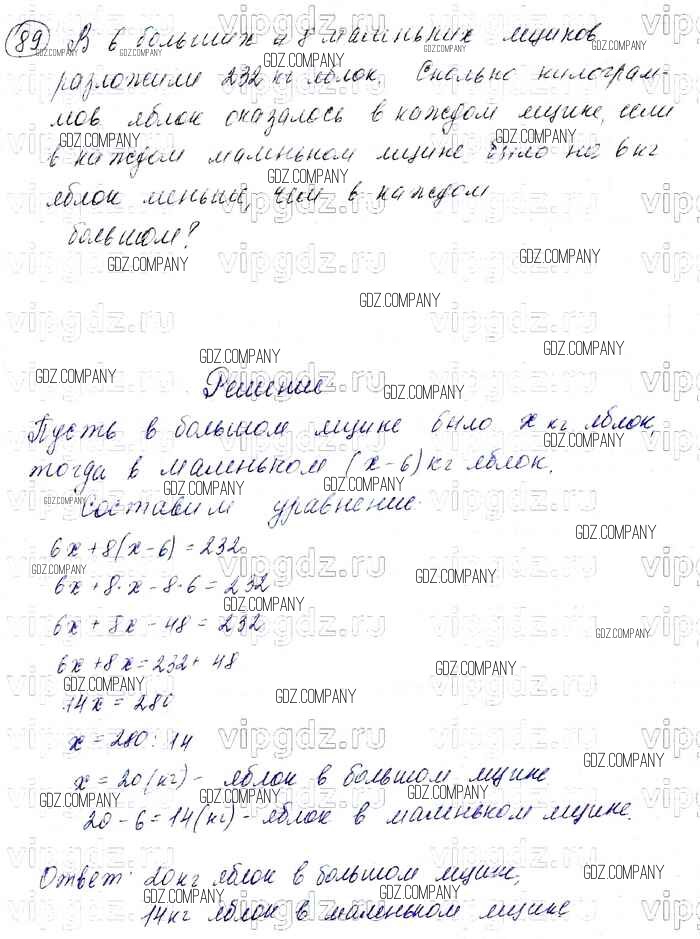 89 В 6 больших и 8 маленьких ящиков
разложили 232 кг яблок. Сколько килограм-
мов яблок оказалось в каждом ящике, если
в каждом маленьком ящике было на 6 кг
яблок меньше, чем в каждом
большом?
Решение
Пусть в большом ящике было x кг яблок,
тогда в маленьком (x-6) кг яблок.
Составим уравнение.
6x+8(x-6)=232
6x+8·x-8·6=232
6x+8x-48=232
6x+8x=232+48
14x=280
x=280:14
x=20(кг)- яблок в большом ящике
20-6=14(кг)- яблок в маленьком ящике.
Ответ: 20 кг яблок в большом ящике,
14 кг яблок в маленьком ящике
GDZ.COMPANY
vipgdz.ru